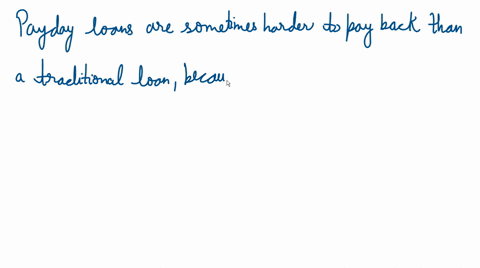 Payday loans are sometimes harder to pay back than
a traditional loan, becau